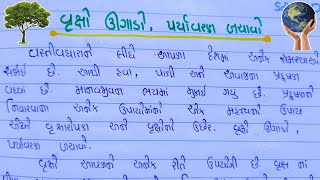 વૃક્ષો ઊગાડો, પર્યાવરણ બચાવો
વસ્તીવધારાને લીધે આપણા દેશમાં અનેક સમસ્યાઓ
સર્જાઈ છે. આથી હવા, પાણી અને અવાજના પ્રદૂષણ
વધ્યાં છે. માનવજીવન ભયમાં મુકાઈ ગયું છે. પ્રદૂષણને
નિવારવાના અનેક ઉપાયોમાંનો એક મહત્ત્વનો ઉપાય
એટલે વૃક્ષારોપણ અને વૃક્ષોનો ઉછેર. વૃક્ષો ઊગાડો,
પર્યાવરણ બચાવો.
વૃક્ષો આપણને અનેક રીતે ઉપયોગી છે. વૃક્ષ નાં